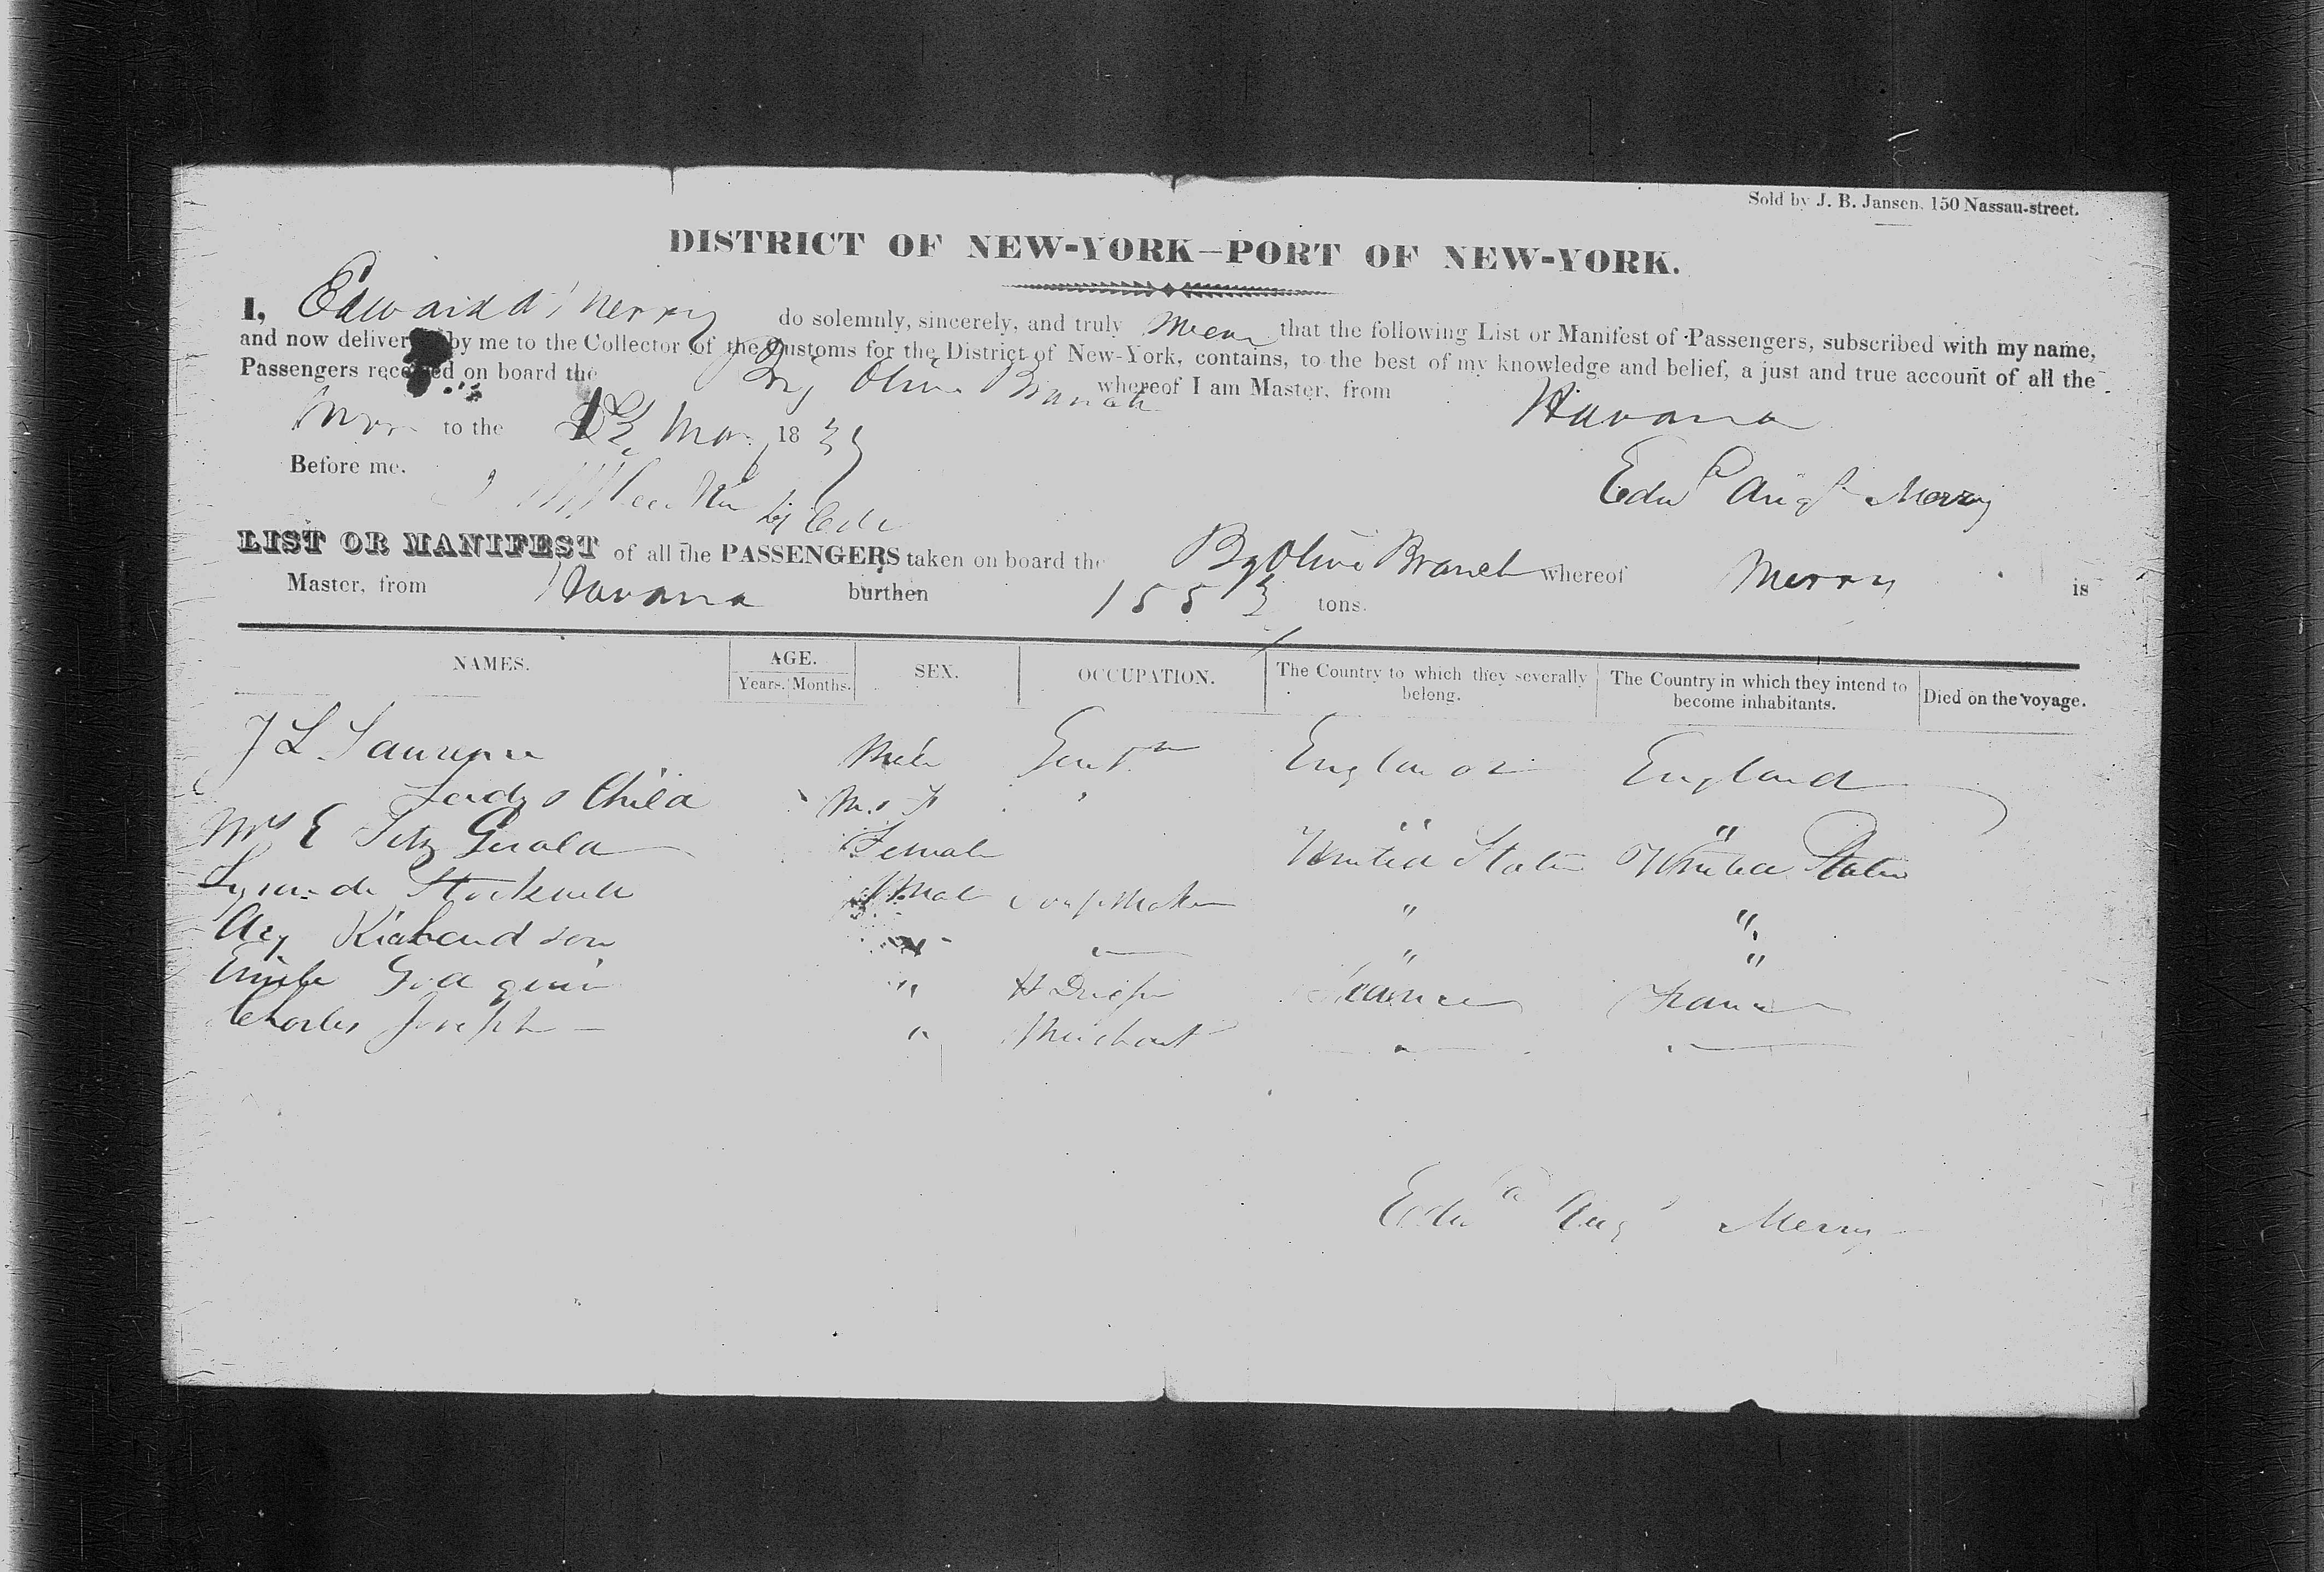 Sold by J. B. Jansen, 150 Nassau-street.
DISTRICT OF NEW-YORK—PORT OF NEW-YORK.
I, Edward A Merry do solemnly, sincerely, and truly swear that the following List or Manifest of Passengers, subscribed with my name,
and now delivered by me to the Collector of the Customs for the District of New-York, contains, to the best of my knowledge and belief, a just and true account of all the
Passengers received on board the Brig Olive Branch whereof I am Master, from Havana
Sworn to the May 18
Before me.
Edwd Augs Merry
LIST OR MANIFEST of all the PASSENGERS taken on board the Bg Olive Branch whereof Merry is
Master, from Havana burthen 155 tons.
NAMES. AGE. SEX. OCCUPATION. The Country to which they severally belong. The Country in which they intend to become inhabitants. Died on the voyage.
Years. Months.
J L Lawrence Male Gentn England England
Lady & Child M. & F " " "
Mrs E Fitz Gerald Female United States United States
Stockwell Male Soap Maker " "
Richardson " " " "
Emile " H Draper France France
Charles Joseph — " Merchant " "
Edwd Augs Merry